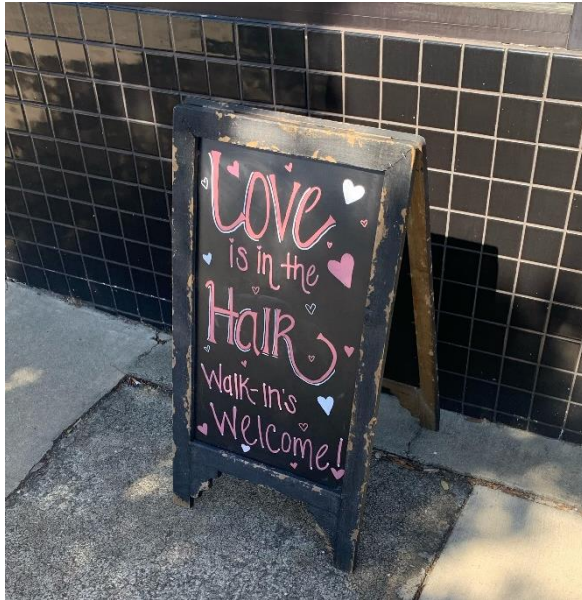 Love
is in the
HaiR
Walk-In's
Welcome!